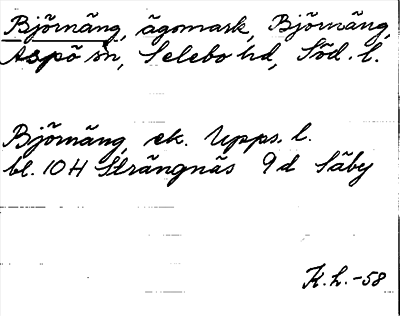 Björnäng, ägomark, Björnäng,
Aspö sn, Selebo hd, Söd. l.
Björnäng, ek. Upps. l.
bl. 10 H Strängnäs 9 d Säby
K.h. -58